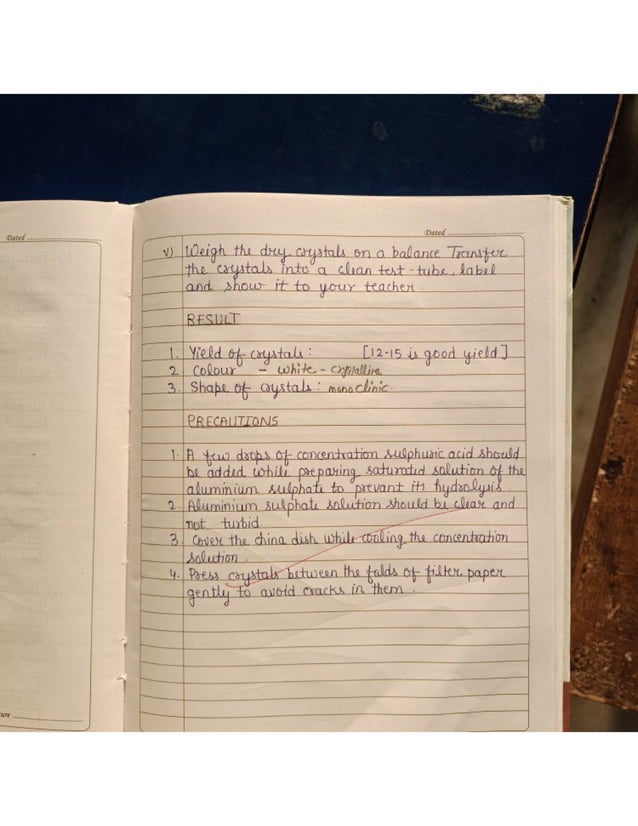 Dated
Dated
v) Weigh the dry crystals on a balance Transfer
the crystals into a clean test-tube, label
and show it to your teacher.
RESULT
1. Yield of crystals : [12-15 is good yield]
2 Colour - white - crystalline
3. Shape of crystals : monoclinic.
PRECAUTIONS
1. A few drops of concentration sulphuric acid should
be added while preparing saturated solution of the
aluminium sulphate to prevant its hydrolysis.
2. Aluminium sulphate solution should be clear and
not turbid.
3. Cover the china dish while cooling the concentration
solution.
4. Press crystals between the folds of filter paper
gently to avoid cracks in them.